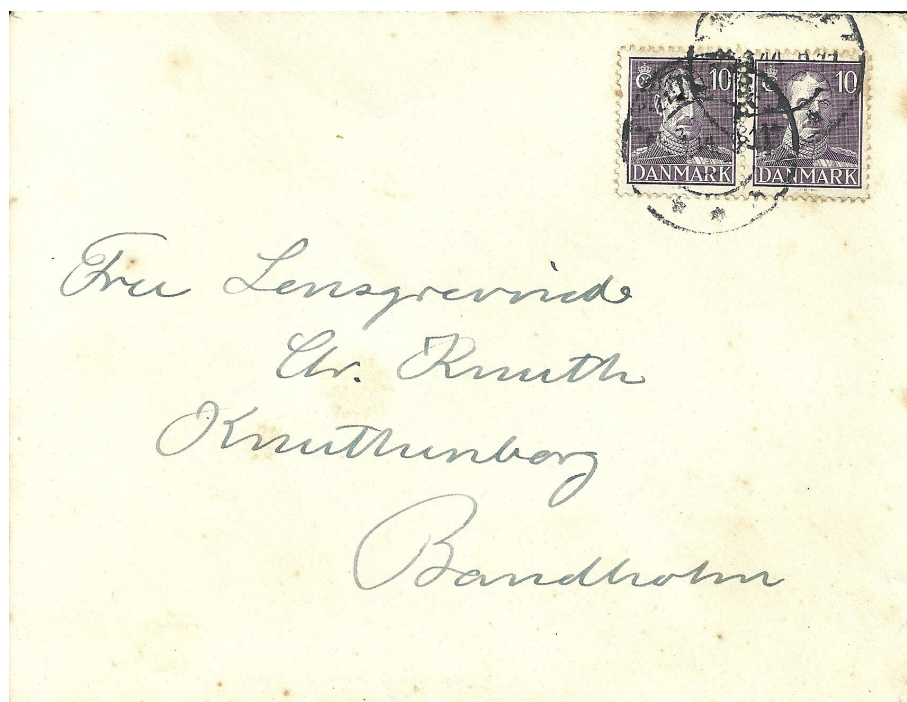 10 10
DANMARK DANMARK
Fru Lensgrevinde
Chr. Knuth
Knuthenborg
Bandholm